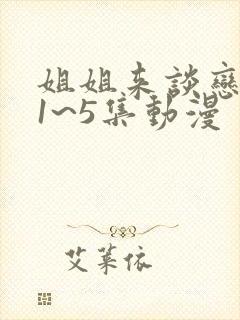 姐姐来談戀
1~5集動漫
艾葉依